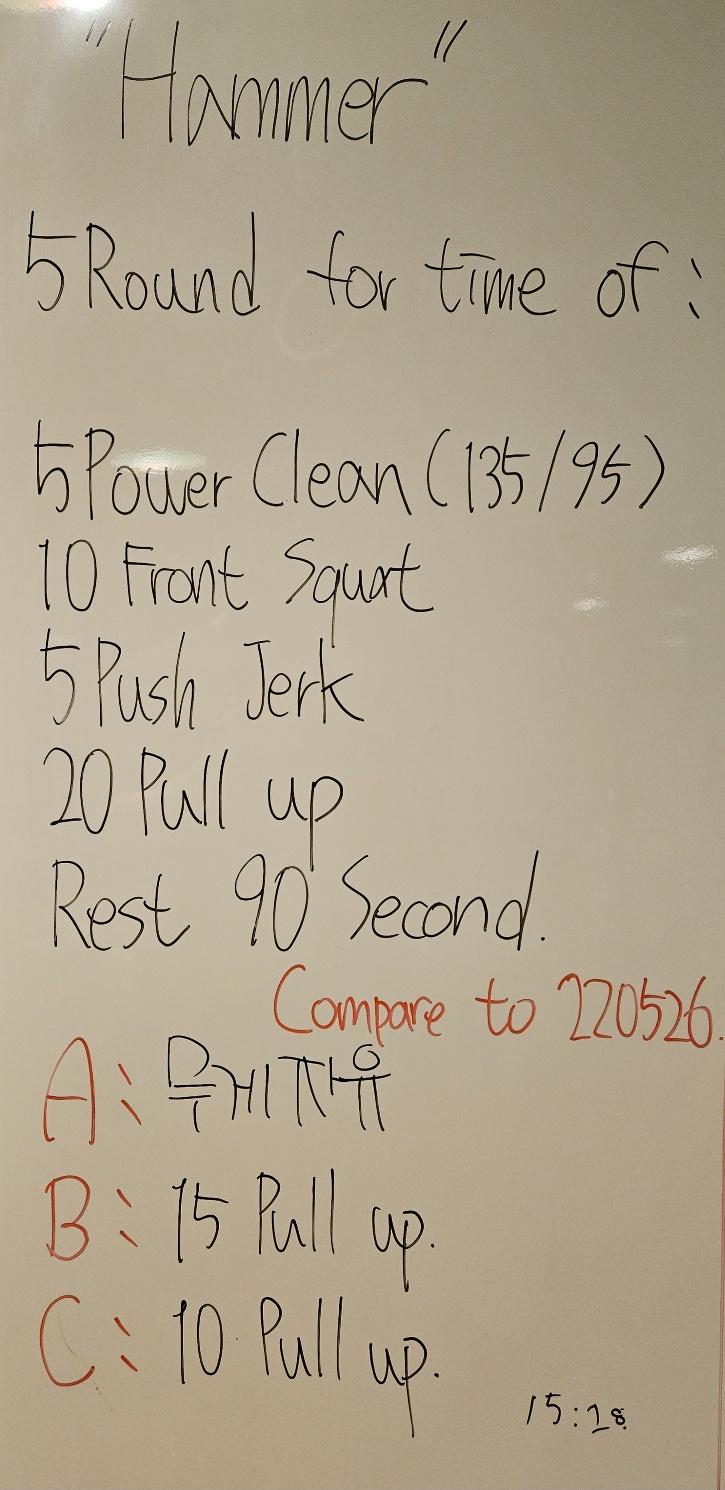 "Hammer"
5 Round for time of :
5 Power Clean (135/95)
10 Front Squat
5 Push Jerk
20 Pull up
Rest 90 Second.
Compare to 220526.
A : 무게자유
B : 15 Pull up.
C : 10 Pull up.